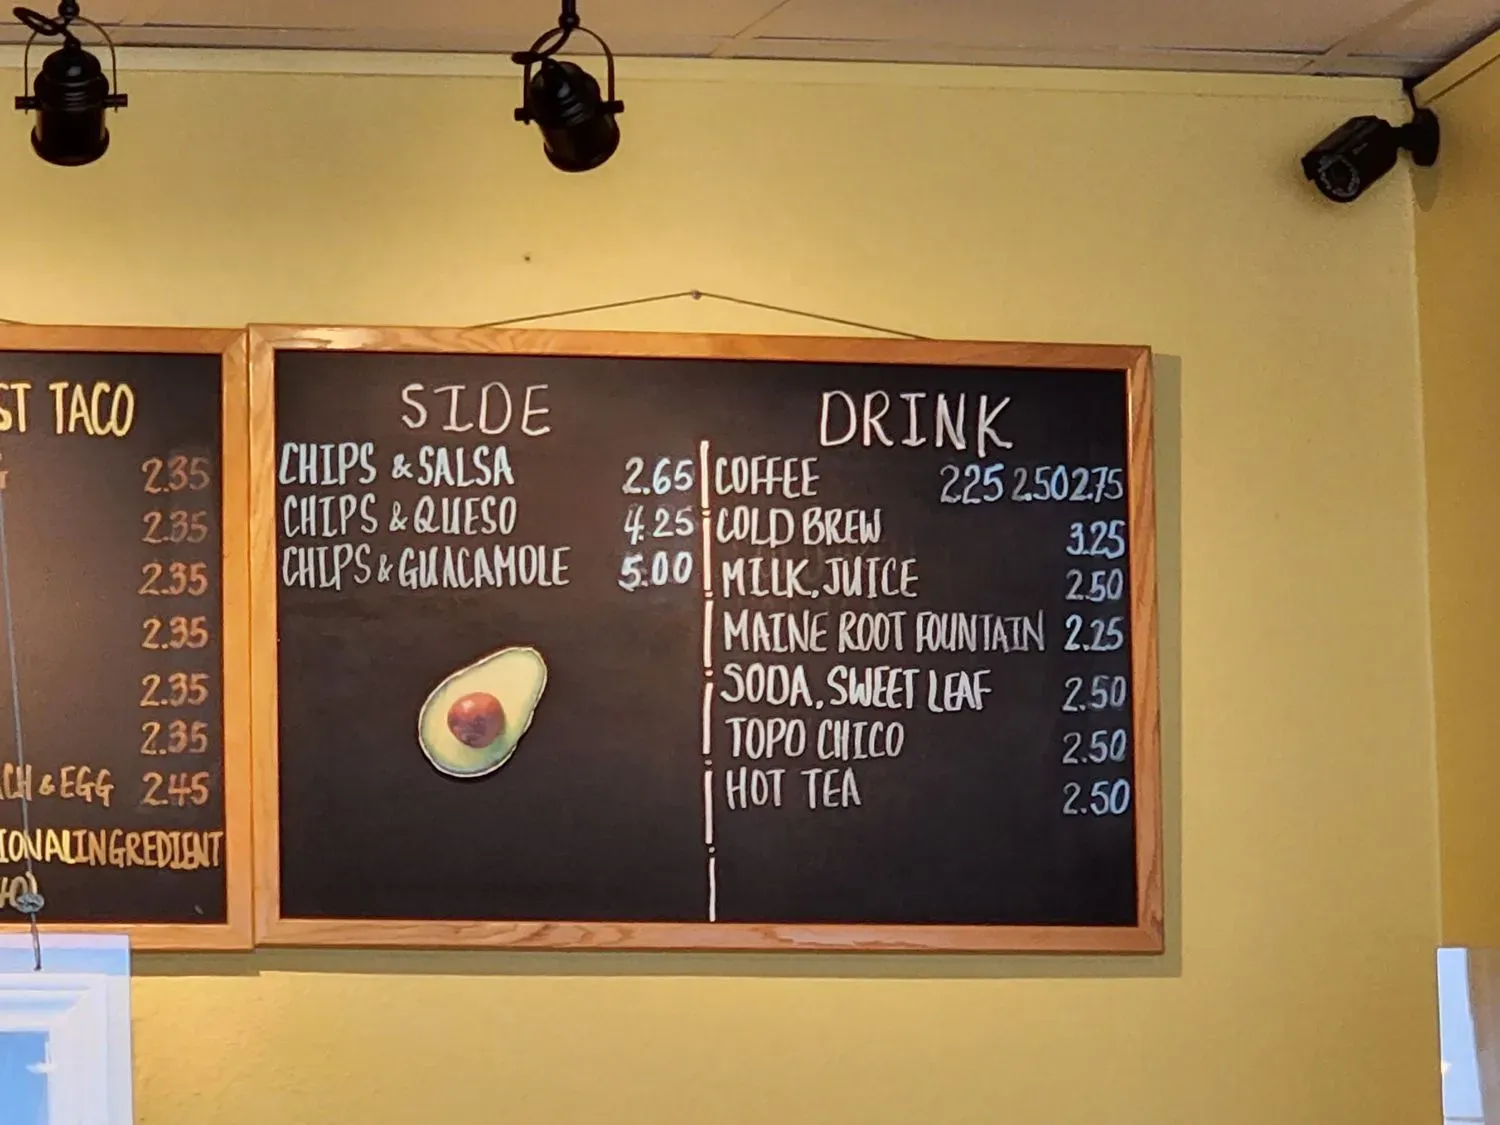 ST TACO
2.35
2.35
2.35
2.35
2.35
2.35
CH & EGG 2.45
IONAL INGREDIENT
SIDE
CHIPS & SALSA 2.65
CHIPS & QUESO 4.25
CHIPS & GUACAMOLE 5.00
DRINK
COFFEE 2.25 2.50 2.75
COLD BREW 3.25
MILK, JUICE 2.50
MAINE ROOT FOUNTAIN 2.25
SODA, SWEET LEAF 2.50
TOPO CHICO 2.50
HOT TEA 2.50